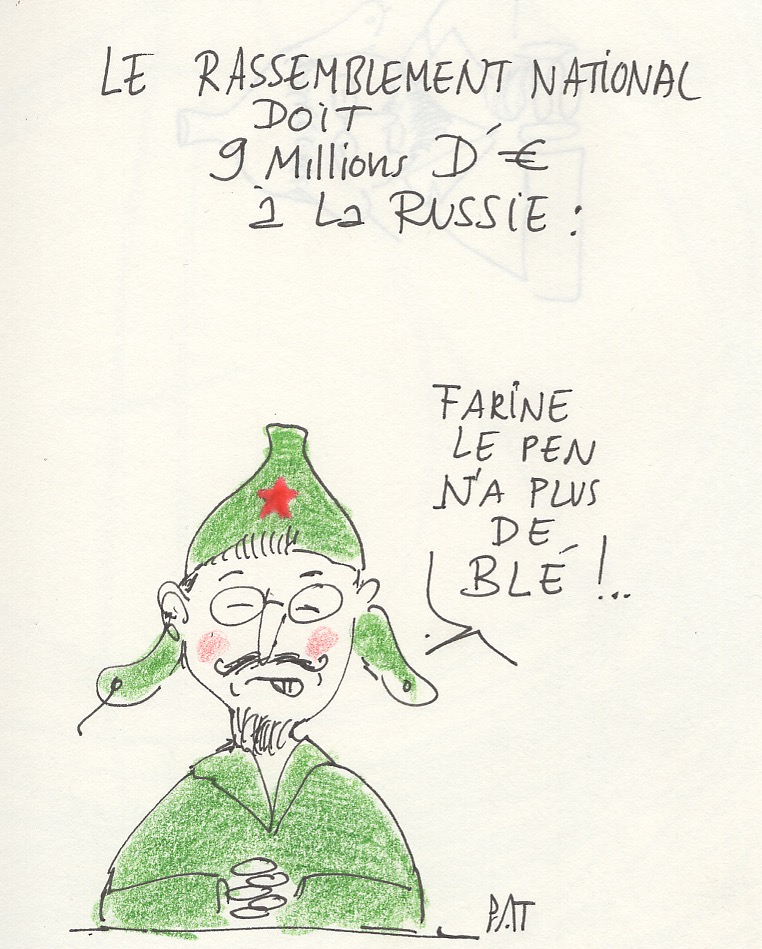 LE RASSEMBLEMENT NATIONAL
DOIT
9 Millions D'€
à La RUSSIE :
FARINE
LE PEN
N'A PLUS
DE
BLÉ !..
PAT